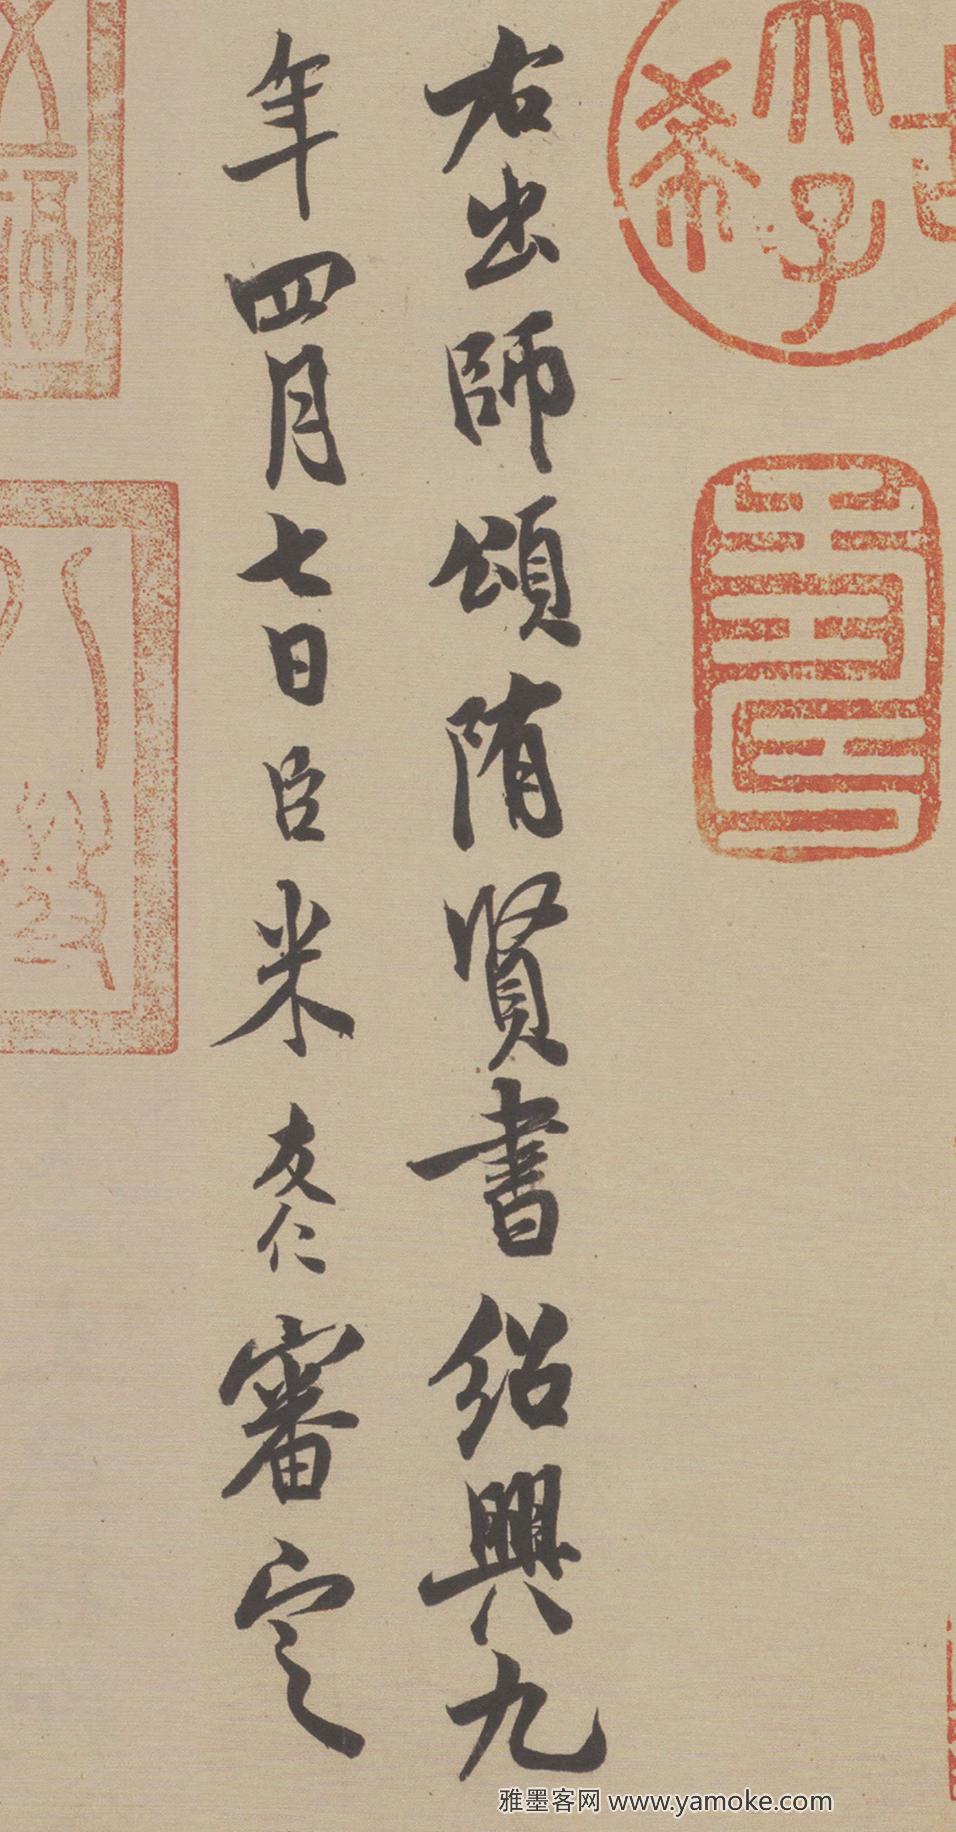 右出師頌隋賢書紹興九
年四月七日臣米友仁審定
古希天子
壽
八徵
雅墨客网 www.yamoke.com